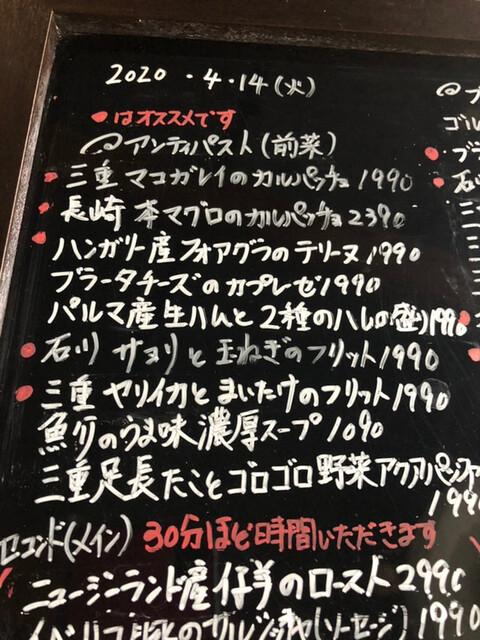 2020.4.14(火)
●はオススメです
アンティパスト(前菜)
●三重 マコガレイのカルパッチョ 1990
●長崎 本マグロのカルパッチョ 2390
●ハンガリー産フォアグラのテリーヌ 1990
ブラータチーズのカプレーゼ 1990
パルマ産生ハムと2種のハムの(盛) 1990
●石川 サヨリと玉ねぎのフリット 1990
●三重 ヤリイカとまいたけのフリット 1990
魚介のうま味濃厚スープ 1090
三重足長たことゴロゴロ野菜アクアパッツァ
1990
セコンド(メイン) 30分ほど時間いただきます
ニュージーランド産仔羊のロースト 2990
(ソーセージ) 1990
ゴル
●ブラ
●石
三
三